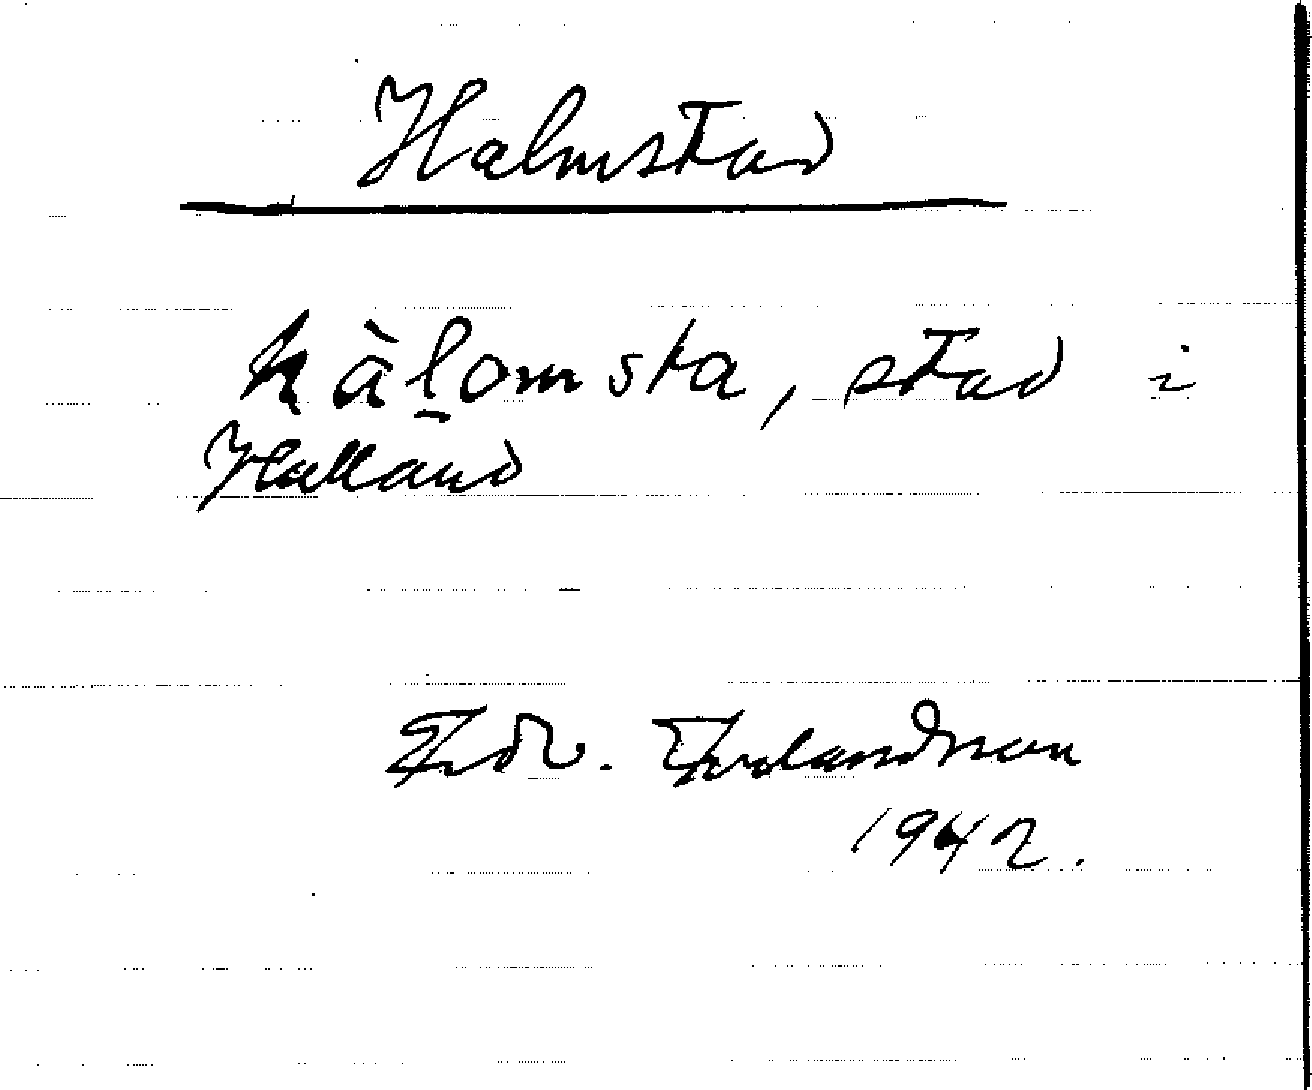 Halmstad
hàl̠omsta, stad i
Halland
Fr. Erlandsson
1942.